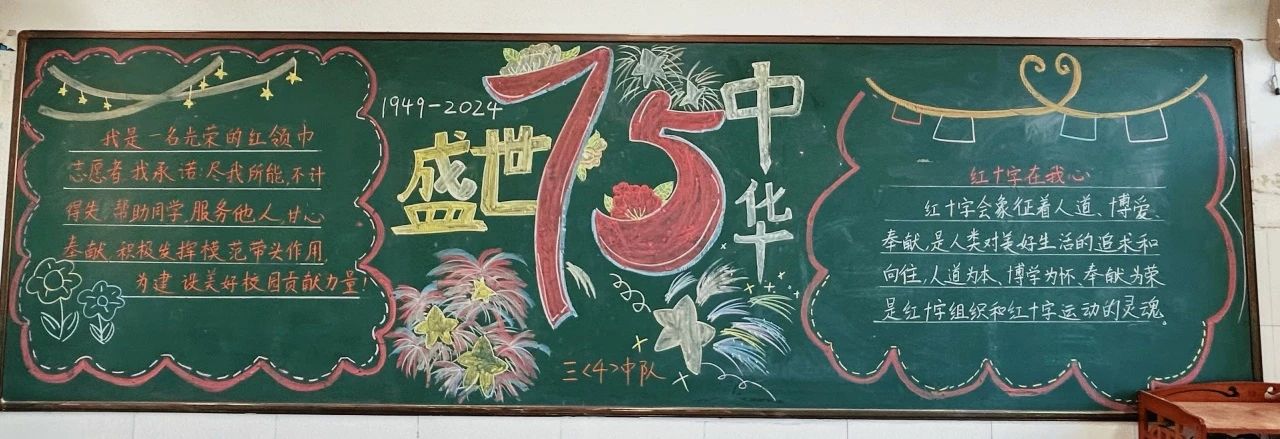 我是一名光荣的红领巾
志愿者,我承诺:尽我所能,不计
得失,帮助同学,服务他人,甘心
奉献,积极发挥模范带头作用
为建设美好校园贡献力量!
1949-2024
盛世75中华
三<4>中队
红十字在我心
红十字会象征着人道、博爱、
奉献,是人类对美好生活的追求和
向往,人道为本、博学为怀、奉献为荣
是红十字组织和红十字运动的灵魂。